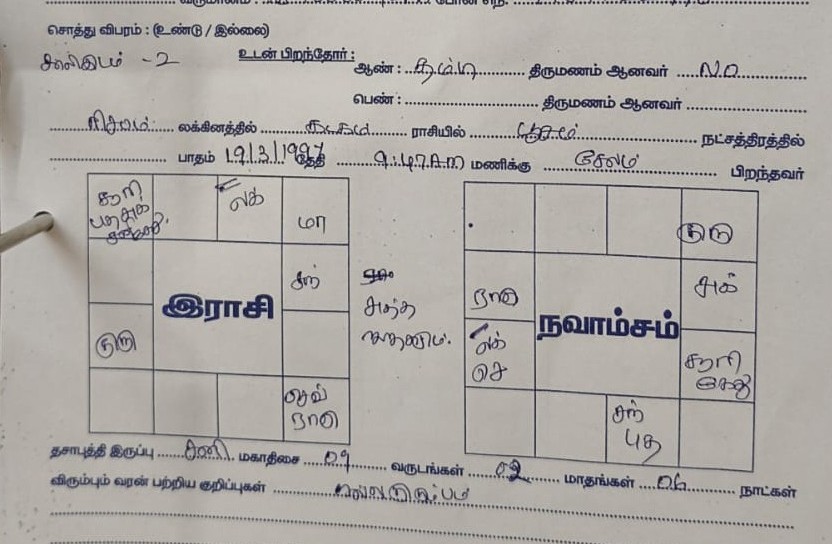 சொத்து விபரம் : (உண்டு / இல்லை)
உடன் பிறந்தோர் :
ஆண் : தம்பி திருமணம் ஆனவர் N.O
பெண் : திருமணம் ஆனவர்
ரிசபம் லக்கினத்தில் கடகம் ராசியில் பூசம் நட்சத்திரத்தில்
பாதம் 19/3/1997 தேதி 9:47 A.m மணிக்கு சேலம் பிறந்தவர்
லக்
மா
சந்
இராசி
குரு
செவ்
ராகு
குரு
ராகு
சுக்
நவாம்சம்
லக்
செ
சூரி
கேது
சந்
புத
தசாபுத்தி இருப்பு சனி மகாதிசை 09 வருடங்கள் 02 மாதங்கள் 06 நாட்கள்
விரும்பும் வரன் பற்றிய குறிப்புகள் நல்ல குடும்பம்